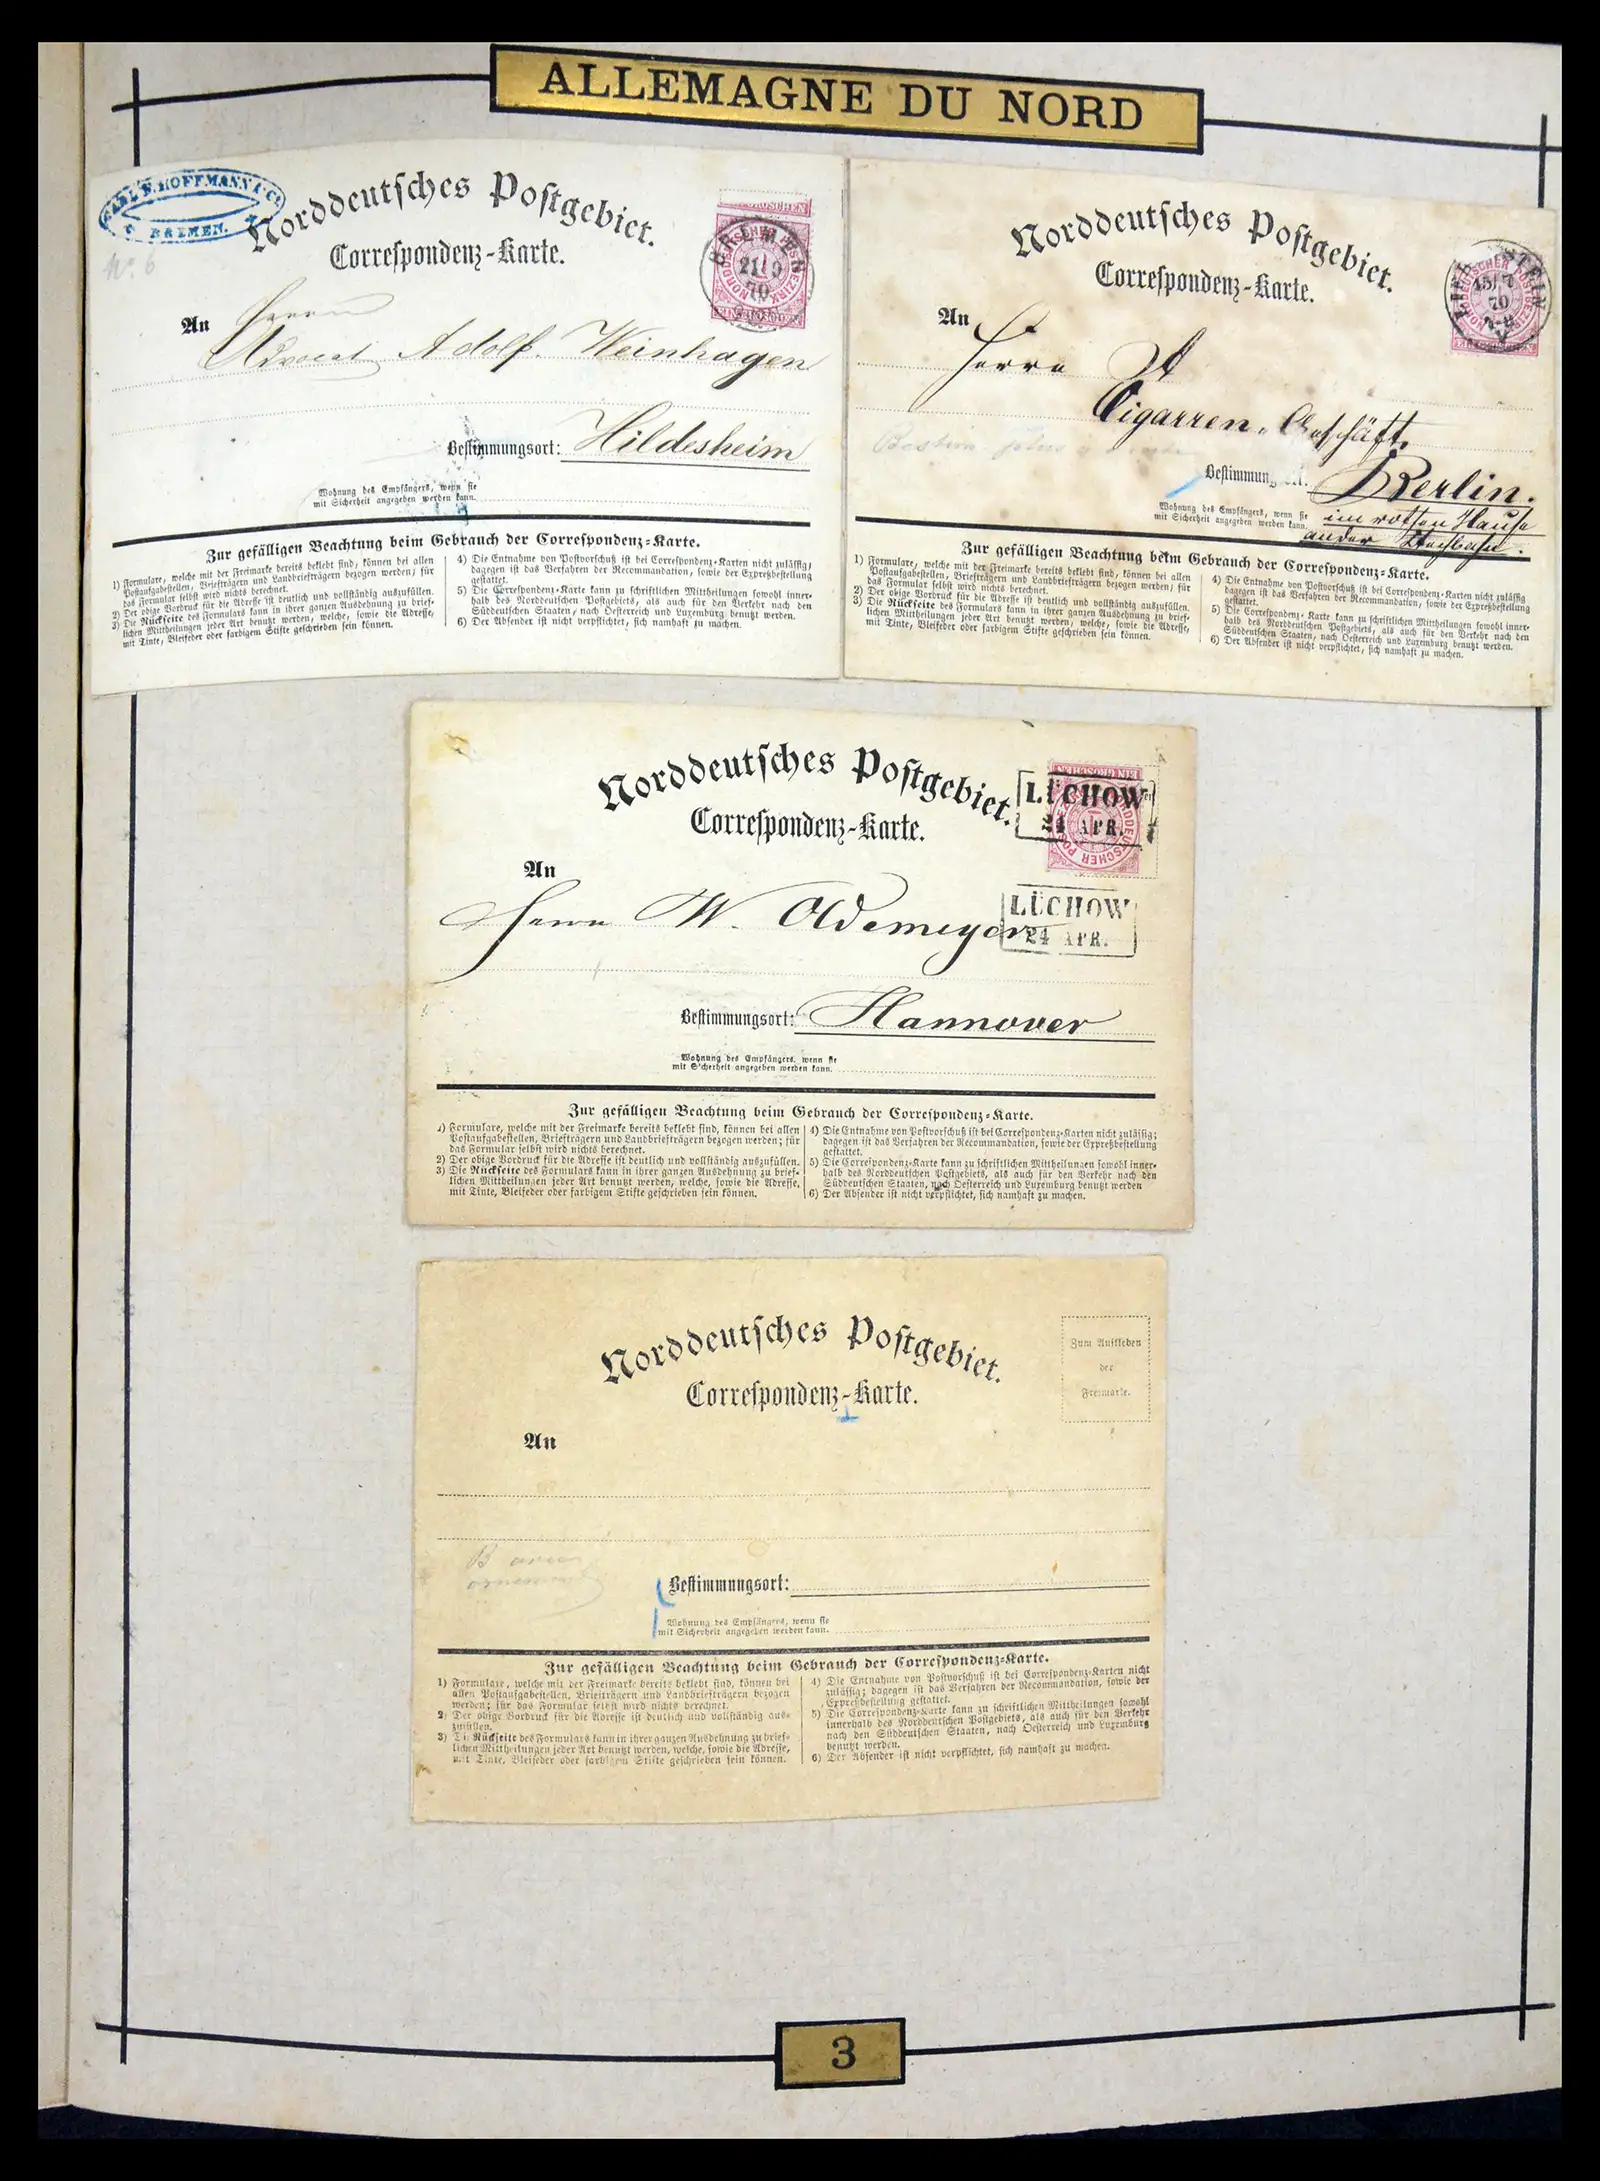 ALLEMAGNE DU NORD
CARL F. HOFFMANN & Co
BREMEN.
No. 6
Norddeutsches Postgebiet.
Correspondenz-Karte.
GROSCHEN
BREMEN
21/9
70
NORDDEUTSCHER POSTBEZIRK
EIN GROSCHEN
An
Herrn
Advocat Adolf. Weinhagen
Bestimmungsort: Hildesheim
Wohnung des Empfängers, wenn sie
mit Sicherheit angegeben werden kann.
Zur gefälligen Beachtung beim Gebrauch der Correspondenz-Karte.
1) Formulare, welche mit der Freimarke bereits beklebt sind, können bei allen
Postaufgabestellen, Briefträgern und Landbriefträgern bezogen werden; für
das Formular selbst wird nichts berechnet.
2) Der obige Vordruck für die Adresse ist deutlich und vollständig auszufüllen.
3) Die Rückseite des Formulars kann in ihrer ganzen Ausdehnung zu brief-
lichen Mittheilungen jeder Art benutzt werden, welche, sowie die Adresse,
mit Tinte, Bleifeder oder farbigem Stifte geschrieben sein können.
4) Die Entnahme von Postvorschuß ist bei Correspondenz-Karten nicht zulässig;
dagegen ist das Verfahren der Recommandation, sowie der Expreßbestellung
gestattet.
5) Die Correspondenz-Karte kann zu schriftlichen Mittheilungen sowohl inner-
halb des Norddeutschen Postgebiets, als auch für den Verkehr nach den
Süddeutschen Staaten, nach Oesterreich und Luxemburg benutzt werden.
6) Der Absender ist nicht verpflichtet, sich namhaft zu machen.
Norddeutsches Postgebiet.
Correspondenz-Karte.
STEIN
15/7
70
An
Herrn
Cigarren-Geschäft.
Berlin.
im rothen Hause
an der Stechbahn.
Wohnung des Empfängers, wenn sie
mit Sicherheit angegeben werden kann.
Zur gefälligen Beachtung beim Gebrauch der Correspondenz-Karte.
1) Formulare, welche mit der Freimarke bereits beklebt sind, können bei allen
Postaufgabestellen, Briefträgern und Landbriefträgern bezogen werden; für
das Formular selbst wird nichts berechnet.
2) Der obige Vordruck für die Adresse ist deutlich und vollständig auszufüllen.
3) Die Rückseite des Formulars kann in ihrer ganzen Ausdehnung zu brief-
lichen Mittheilungen jeder Art benutzt werden, welche, sowie die Adresse,
mit Tinte, Bleifeder oder farbigem Stifte geschrieben sein können.
4) Die Entnahme von Postvorschuß ist bei Correspondenz-Karten nicht zulässig
dagegen ist das Verfahren der Recommandation, sowie der Expreßbestellung
gestattet.
5) Die Correspondenz-Karte kann zu schriftlichen Mittheilungen sowohl inner-
halb des Norddeutschen Postgebiets, als auch für den Verkehr nach den
Süddeutschen Staaten, nach Oesterreich und Luxemburg benutzt werden.
6) Der Absender ist nicht verpflichtet, sich namhaft zu machen.
Norddeutsches Postgebiet.
Correspondenz-Karte.
EIN GROSCHEN
LÜCHOW
24 APR.
An
Herrn W. Oldemeyer
LÜCHOW
24 APR.
Bestimmungsort: Hannover
Wohnung des Empfängers, wenn sie
mit Sicherheit angegeben werden kann.
Zur gefälligen Beachtung beim Gebrauch der Correspondenz-Karte.
1) Formulare, welche mit der Freimarke bereits beklebt sind, können bei allen
Postaufgabestellen, Briefträgern und Landbriefträgern bezogen werden; für
das Formular selbst wird nichts berechnet.
2) Der obige Vordruck für die Adresse ist deutlich und vollständig auszufüllen.
3) Die Rückseite des Formulars kann in ihrer ganzen Ausdehnung zu brief-
lichen Mittheilungen jeder Art benutzt werden, welche, sowie die Adresse,
mit Tinte, Bleifeder oder farbigem Stifte geschrieben sein können.
4) Die Entnahme von Postvorschuß ist bei Correspondenz-Karten nicht zulässig;
dagegen ist das Verfahren der Recommandation, sowie der Expreßbestellung
gestattet.
5) Die Correspondenz-Karte kann zu schriftlichen Mittheilungen sowohl inner-
halb des Norddeutschen Postgebiets, als auch für den Verkehr nach den
Süddeutschen Staaten, nach Oesterreich und Luxemburg benutzt werden
6) Der Absender ist nicht verpflichtet, sich namhaft zu machen.
Norddeutsches Postgebiet.
Correspondenz-Karte.
Zum Aufkleben
der
Freimarke.
An
Bestimmungsort:
Wohnung des Empfängers, wenn sie
mit Sicherheit angegeben werden kann.
Zur gefälligen Beachtung beim Gebrauch der Correspondenz-Karte.
1) Formulare, welche mit der Freimarke bereits beklebt sind, können bei
allen Postaufgabestellen, Briefträgern und Landbriefträgern bezogen
werden; für das Formular selbst wird nichts berechnet.
2) Der obige Vordruck für die Adresse ist deutlich und vollständig aus-
zufüllen.
3) Die Rückseite des Formulars kann in ihrer ganzen Ausdehnung zu brief-
lichen Mittheilungen jeder Art benutzt werden, welche, sowie die Adresse,
mit Tinte, Bleifeder oder farbigem Stifte geschrieben sein können.
4) Die Entnahme von Postvorschuß ist bei Correspondenz-Karten nicht
zulässig; dagegen ist das Verfahren der Recommandation, sowie der
Expreßbestellung gestattet.
5) Die Correspondenz-Karte kann zu schriftlichen Mittheilungen sowohl
innerhalb des Norddeutschen Postgebiets, als auch für den Verkehr
nach den Süddeutschen Staaten, nach Oesterreich und Luxemburg
benutzt werden.
6) Der Absender ist nicht verpflichtet, sich namhaft zu machen.
3